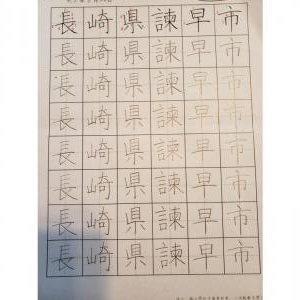 長崎県諫早市
長崎県諫早市
長崎県諫早市
長崎県諫早市
長崎県諫早市
長崎県諫早市
長崎県諫早市
長崎県諫早市